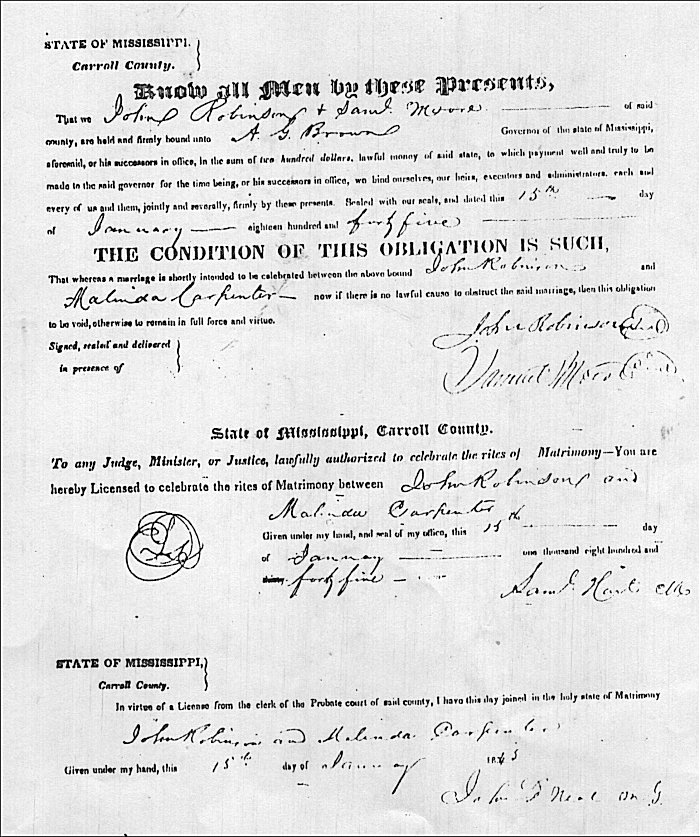 STATE OF MISSISSIPPI.
Carroll County.
Know all Men by these Presents,
That we John Robinson & Saml. Moore of said
county, are held and firmly bound unto A. G. Brown Governor of the state of Mississippi,
aforesaid, or his successors in office, in the sum of two hundred dollars, lawful money of said state, to which payment well and truly to be
made to the said governor for the time being, or his successors in office, we bind ourselves, our heirs, executors and administrators, each and
every of us and them, jointly and severally, firmly by these presents. Sealed with our seals, and dated this 15th day
of January eighteen hundred and forty five
THE CONDITION OF THIS OBLIGATION IS SUCH,
That whereas a marriage is shortly intended to be celebrated between the above bound John Robinson and
Malinda Carpenter now if there is no lawful cause to obstruct the said marriage, then this obligation
to be void, otherwise to remain in full force and virtue.
Signed, sealed and delivered
in presence of
John Robinson
Samuel Moore
State of Mississippi, Carroll County.
To any Judge, Minister, or Justice, lawfully authorized to celebrate the rites of Matrimony—You are
hereby Licensed to celebrate the rites of Matrimony between John Robinson and
Malinda Carpenter
Given under my hand, and seal of my office, this 15th day
of January one thousand eight hundred and
forty five
Saml. Hart Clk
STATE OF MISSISSIPPI,
Carroll County.
In virtue of a License from the clerk of the Probate court of said county, I have this day joined in the holy state of Matrimony
John Robinson and Malinda Carpenter
Given under my hand, this 15th day of January 1845
John Neal M G.